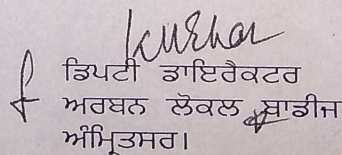 ਡਿਪਟੀ ਡਾਇਰੈਕਟਰ
ਅਰਬਨ ਲੋਕਲ ਬਾਡੀਜ
ਅੰਮ੍ਰਿਤਸਰ।